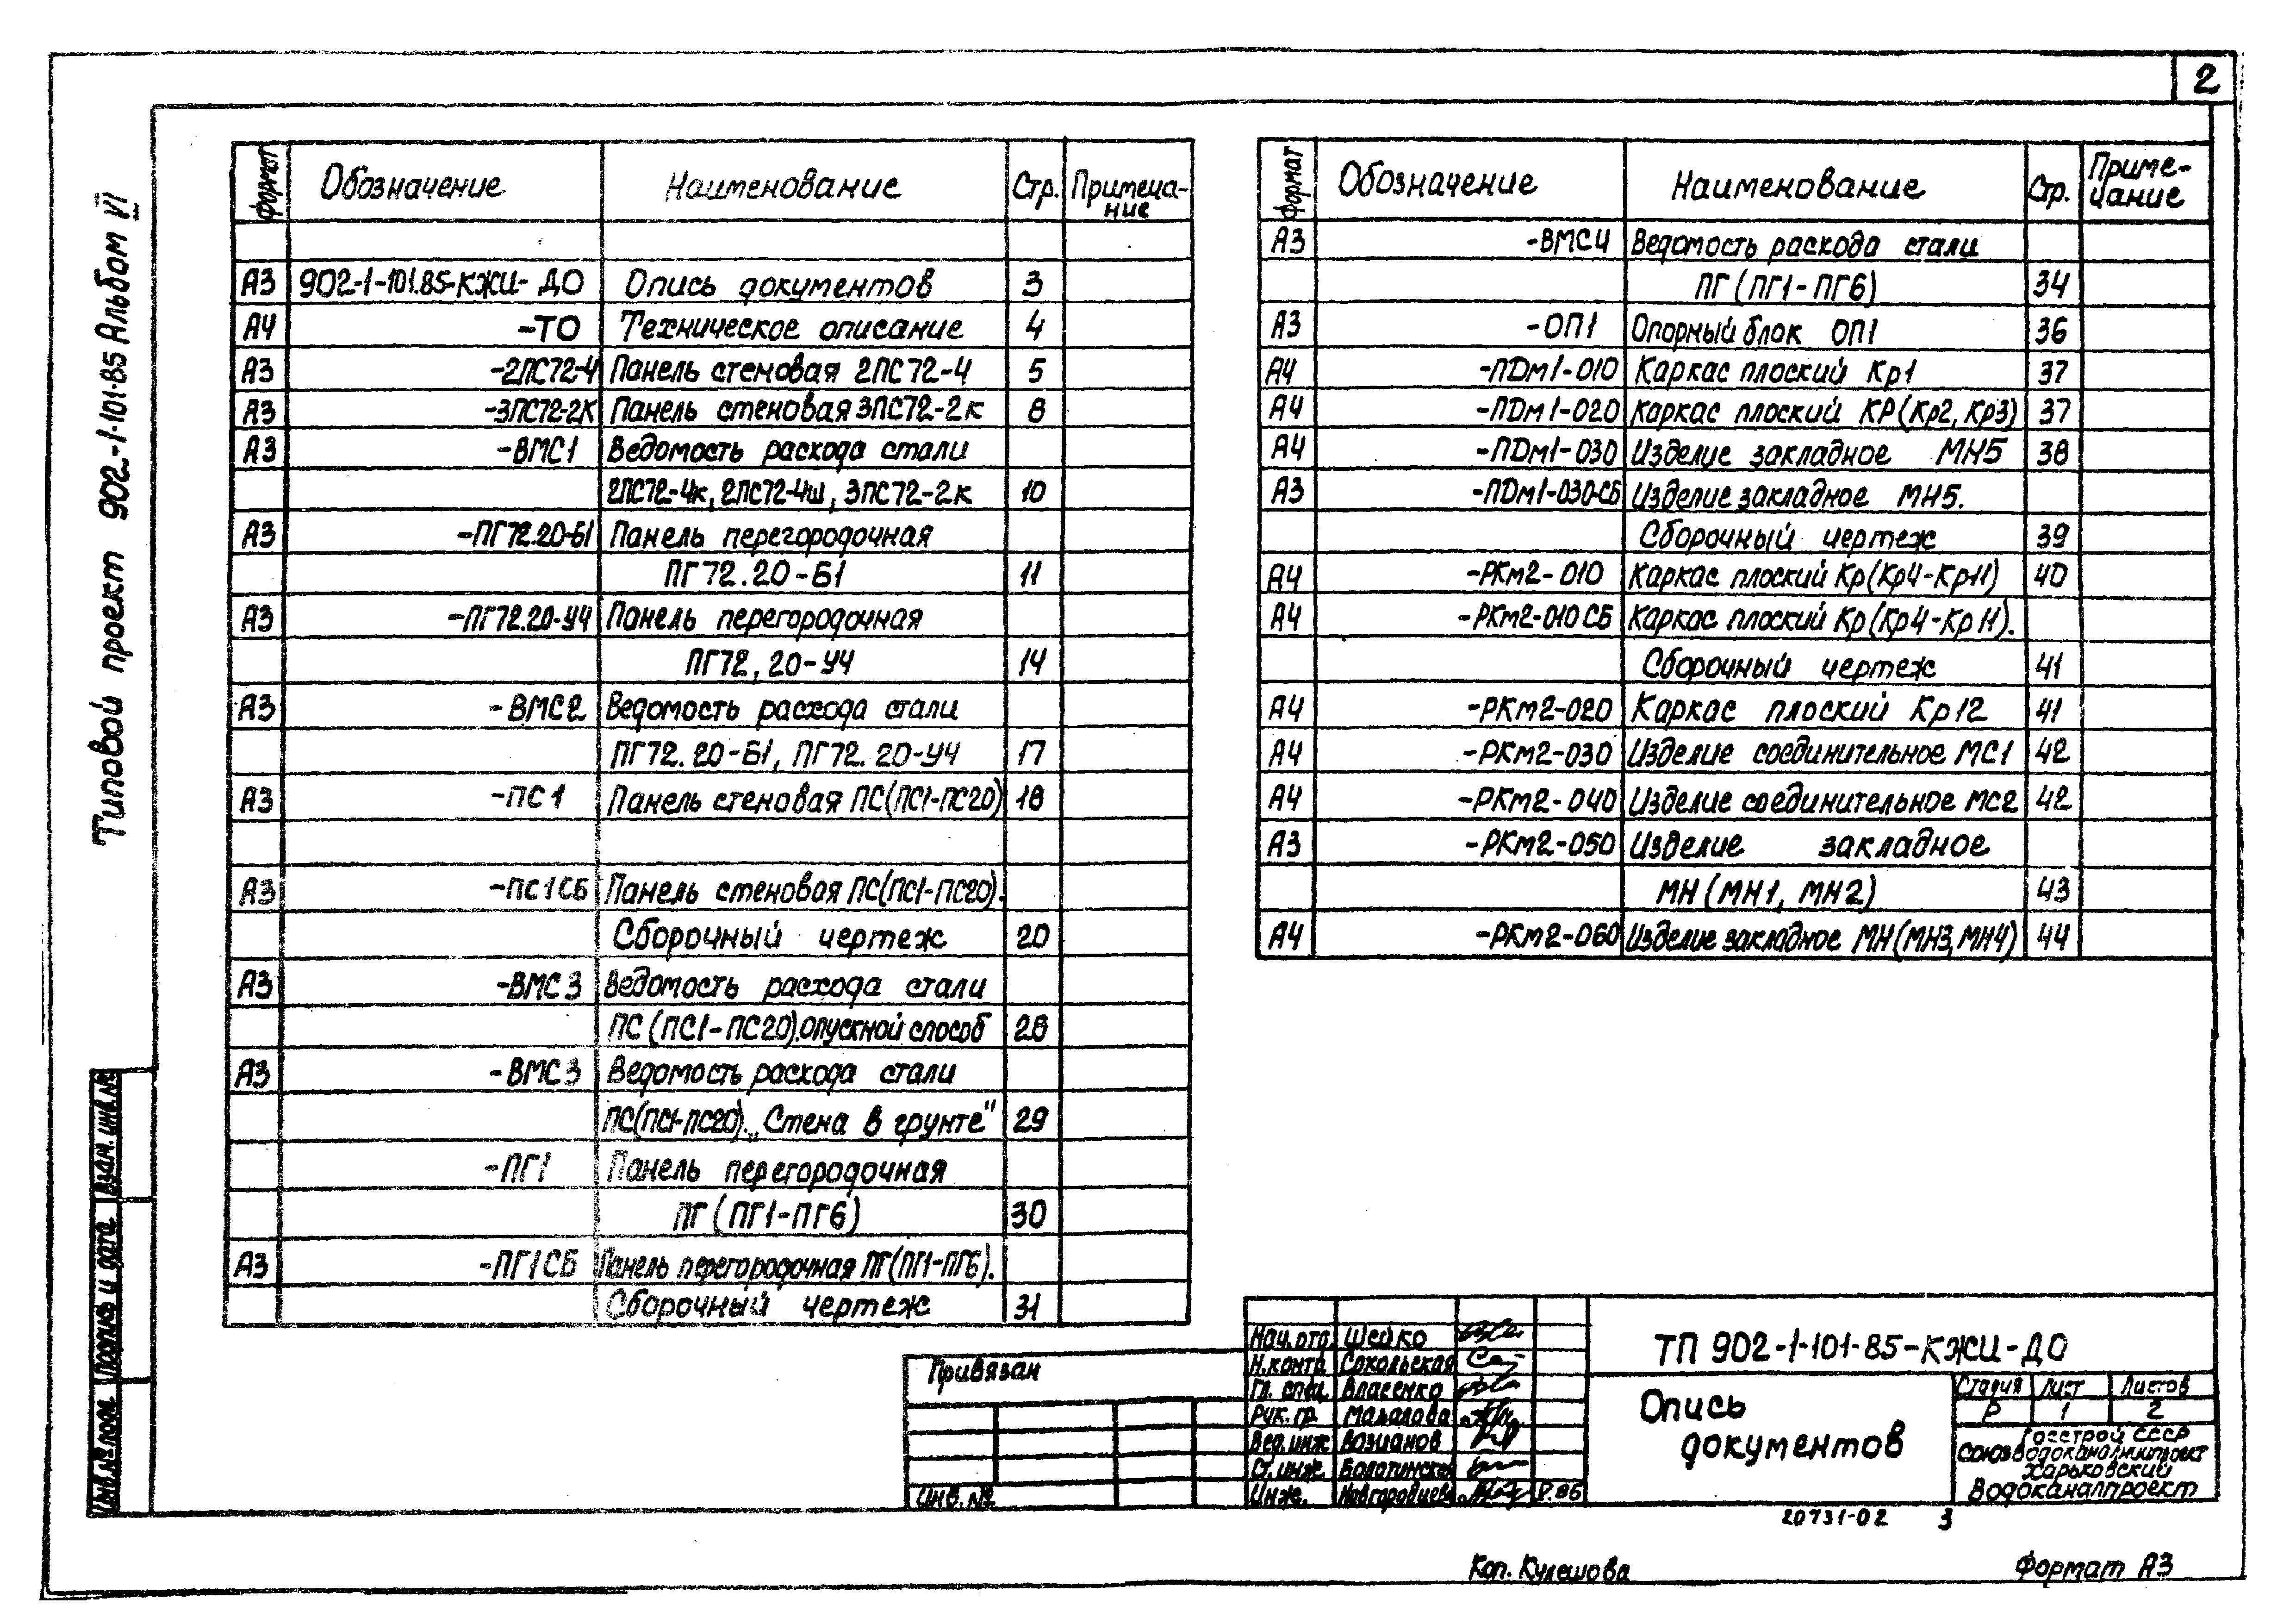 2
Типовой проект 902-1-101-85 Альбом VI
Формат Обозначение Наименование Стр. Примеча-
ние
А3 902-1-101.85-КЖИ-ДО Опись документов 3
А4 -ТО Техническое описание 4
А3 -2ПС72-4 Панель стеновая 2ПС72-4 5
А3 -3ПС72-2К Панель стеновая 3ПС72-2к 8
А3 -ВМС1 Ведомость расхода стали
2ПС72-4к, 2ПС72-4ш, 3ПС72-2к 10
А3 -ПГ72.20-Б1 Панель перегородочная
ПГ72.20-Б1 11
А3 -ПГ72.20-У4 Панель перегородочная
ПГ72,20-У4 14
А3 -ВМС2 Ведомость расхода стали
ПГ72.20-Б1, ПГ72.20-У4 17
А3 -ПС1 Панель стеновая ПС(ПС1-ПС20) 18
А3 -ПС1СБ Панель стеновая ПС(ПС1-ПС20).
Сборочный чертеж 20
А3 -ВМС3 Ведомость расхода стали
ПС (ПС1-ПС20).Опускной способ 28
А3 -ВМС3 Ведомость расхода стали
ПС(ПС1-ПС20). „Стена в грунте" 29
-ПГ1 Панель перегородочная
ПГ (ПГ1-ПГ6) 30
А3 -ПГ1СБ Панель перегородочная ПГ(ПГ1-ПГ6).
Сборочный чертеж 31
Формат Обозначение Наименование Стр. Приме-
чание
А3 -ВМС4 Ведомость расхода стали
ПГ (ПГ1-ПГ6) 34
А3 -ОП1 Опорный блок ОП1 36
А4 -ПДм1-010 Каркас плоский Кр1 37
А4 -ПДм1-020 Каркас плоский КР(Кр2, Кр3) 37
А4 -ПДм1-030 Изделие закладное МН5 38
А3 -ПДм1-030-СБ Изделие закладное МН5.
Сборочный чертеж 39
А4 -РКм2-010 Каркас плоский Кр(Кр4-Кр11) 40
А4 -РКм2-010 СБ Каркас плоский Кр(Кр4-Кр11).
Сборочный чертеж 41
А4 -РКм2-020 Каркас плоский Кр12 41
А4 -РКм2-030 Изделие соединительное МС1 42
А4 -РКм2-040 Изделие соединительное МС2 42
А3 -РКм2-050 Изделие закладное
МН (МН1, МН2) 43
А4 -РКм2-060 Изделие закладное МН(МН3,МН4) 44
Инв.№ подл. Подпись и дата Взам. инв.№
Привязан
Инв. №
Нач.отд. Шейко
Н.контр. Сокольская
Гл. спец. Власенко
Рук. гр.
Вед.инж Вазианов
Ст. инж.
Инж.
ТП 902-1-101-85-КЖИ-ДО
Опись
документов
Стадия Лист Листов
Р 1 2
Госстрой СССР
Союзводоканалниипроект
Харьковский
Водоканалпроект
20731-02 3
Коп. Кулешова
Формат А3